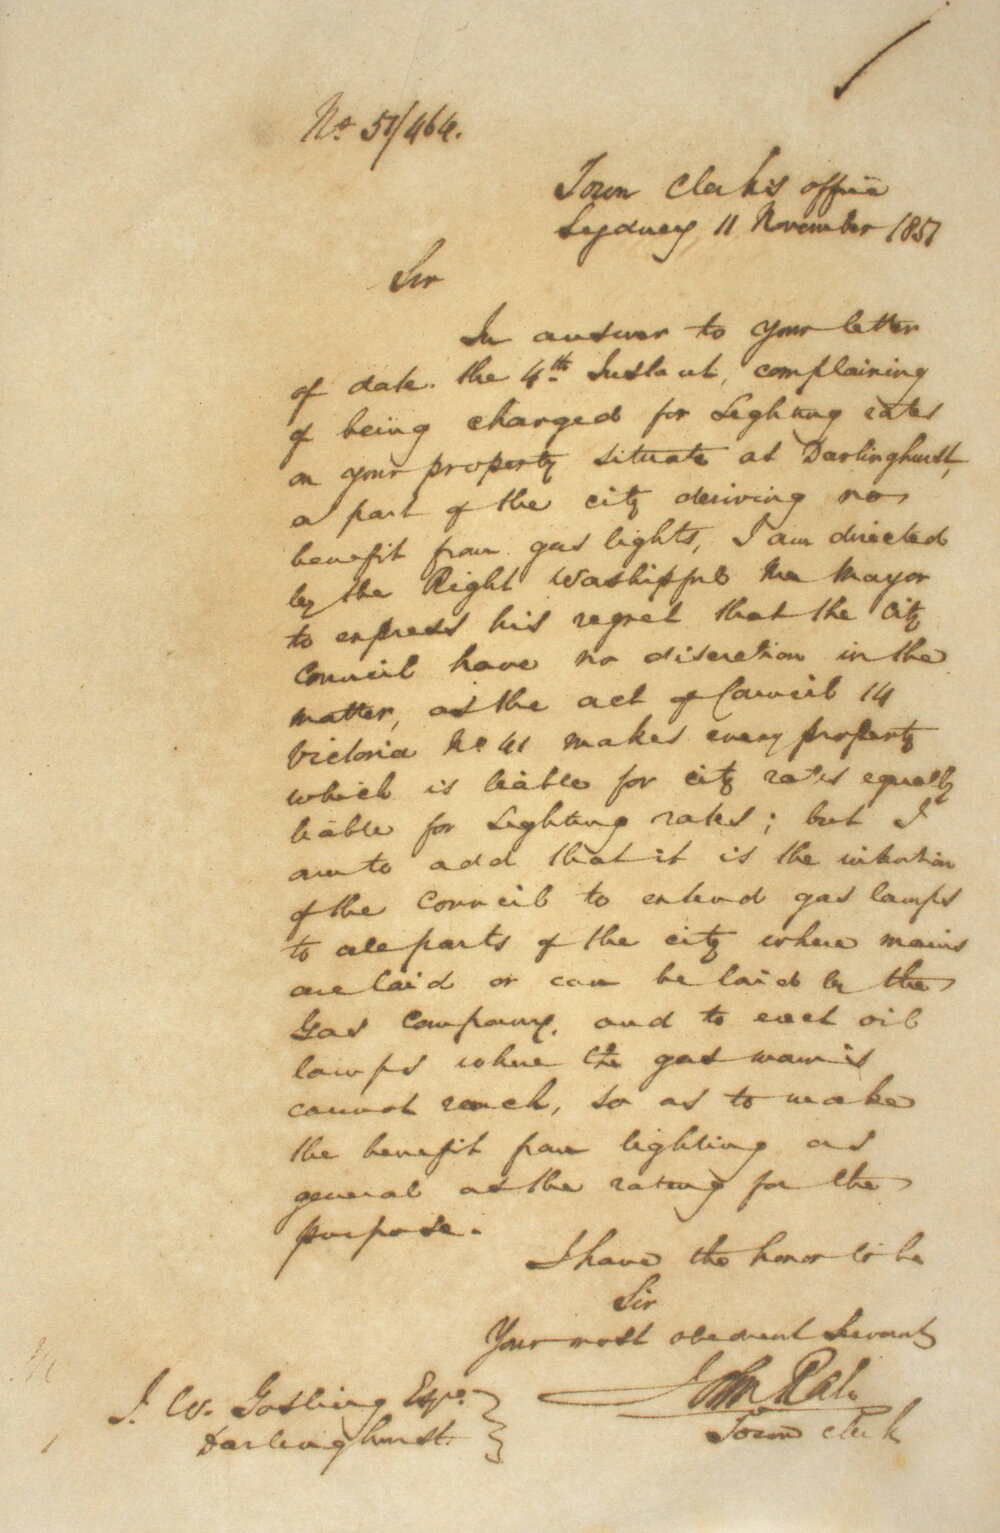 No 51/464.
Town Clerk's office
Sydney 11 November 1851
Sir
In answer to your letter
of date the 4th Instant, complaining
of being charged for Lighting rates
on your property situate at Darlinghurst,
a part of the city deriving no
benefit from gas lights, I am directed
by the Right Worshipful the Mayor
to express his regret that the city
Council have no discretion in the
matter, as the act of Council 14
Victoria No 41 makes every property
which is liable for city rates equally
liable for Lighting rates; but I
am to add that it is the intention
of the Council to extend gas lamps
to all parts of the city where mains
are laid or can be laid by the
Gas Company, and to erect oil
lamps where the gas mains
cannot reach, so as to make
the benefit from lighting as
general as the rating for the
purpose.
I have the honor to be
Sir
Your most obedient Servant
John Rae
Town Clerk
J. W. Gosling Esqre.
Darlinghurst.